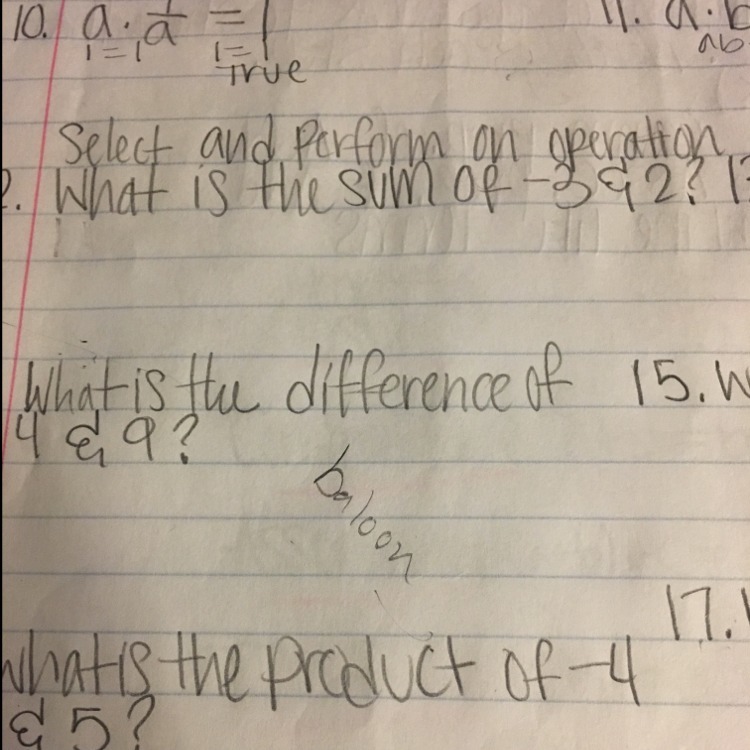 10. a · 1/a = 1 11. a · b
1 = 1 1 = 1 ab
True
Select and Perform on operation
2. What is the sum of -3 & 2? 13
What is the difference of 15. W
4 & 9?
baloon
17.
What is the product of -4
& 5?